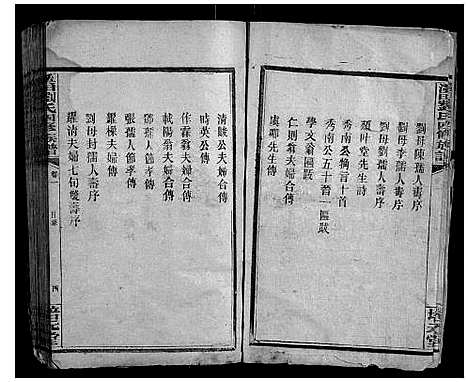 劉母陳孺人壽序
劉母李孺人壽序
劉母劉孺人壽序
題叶堂先生詩
秀南公輓言十首
秀南公五十晉一區跋
學文翁區跋
仁則翁夫婦合傳
虞卿先生傳
清畯公夫婦合傳
時英公傳
作霖翁夫婦合傳
毓陽翁夫婦合傳
鄒孺人節孝傳
張孺人節孝傳
耀樑夫婦傳
劉母封孺人壽序
耀清夫婦七旬雙壽序
卷一
目錄
四